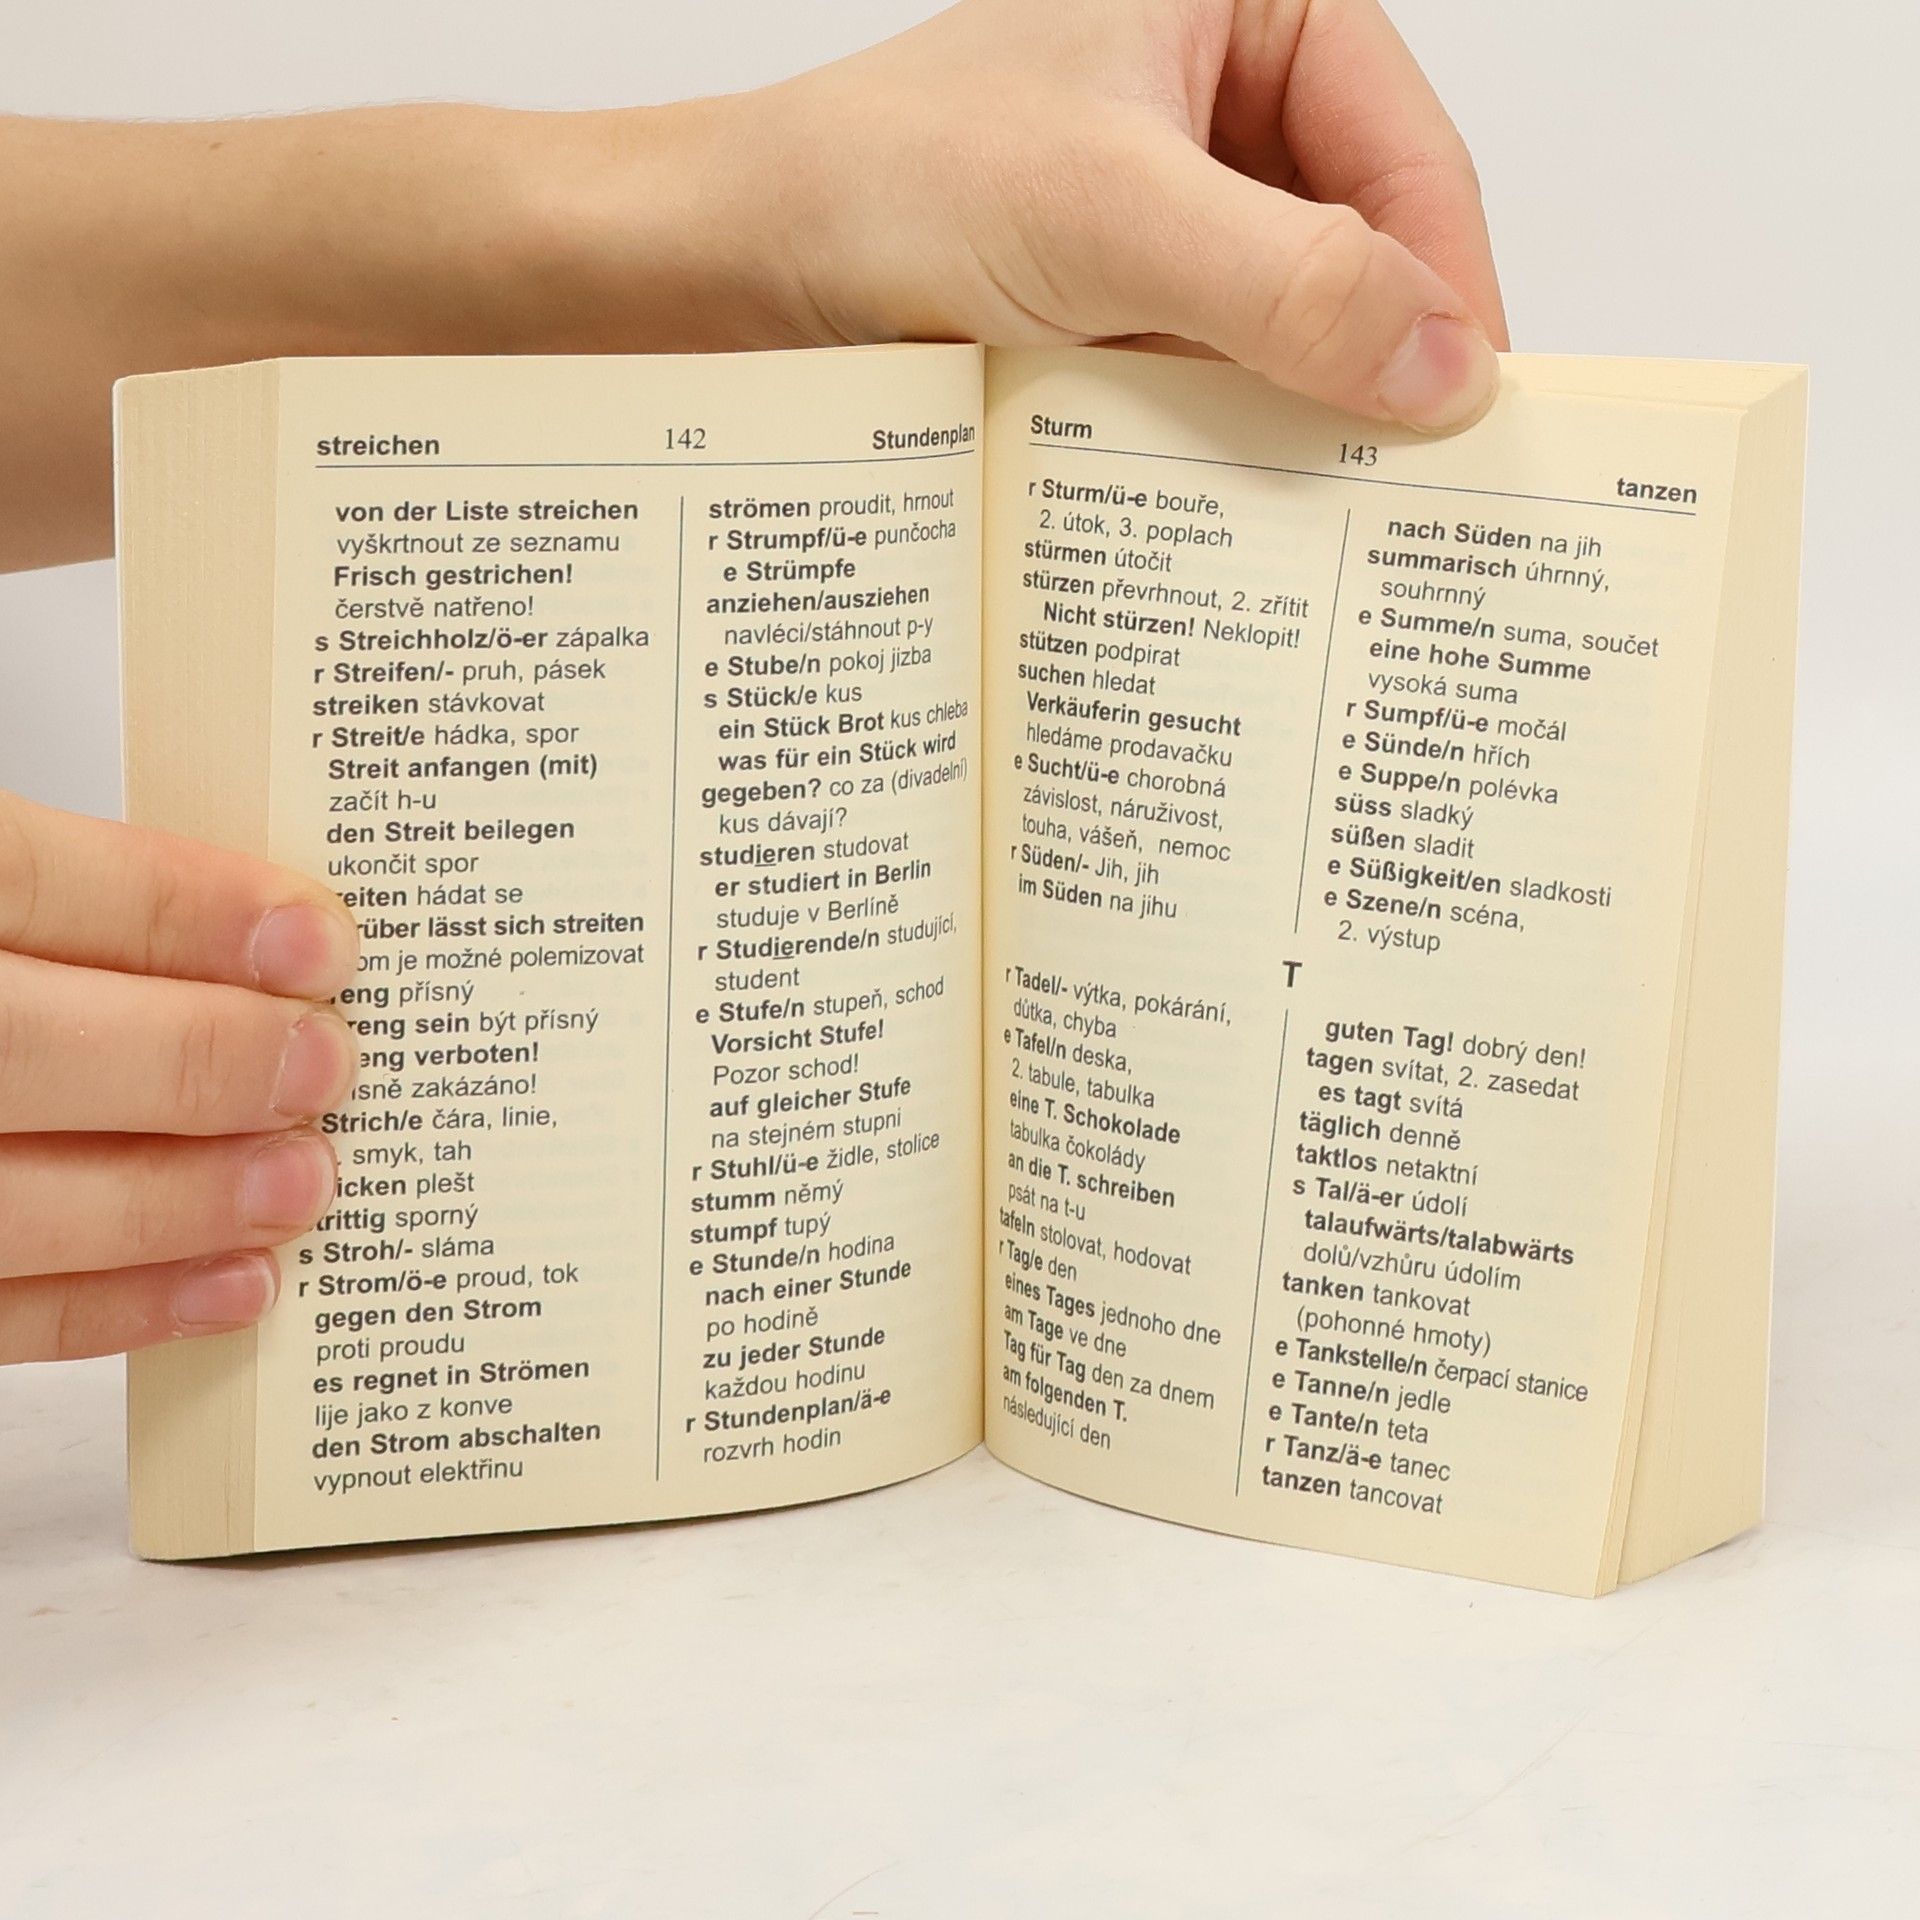 streichen 142 Stundenplan
von der Liste streichen
vyškrtnout ze seznamu
Frisch gestrichen!
čerstvě natřeno!
s Streichholz/ö-er zápalka
r Streifen/- pruh, pásek
streiken stávkovat
r Streit/e hádka, spor
Streit anfangen (mit)
začít h-u
den Streit beilegen
ukončit spor
reiten hádat se
rüber lässt sich streiten
om je možné polemizovat
eng přísný
reng sein být přísný
eng verboten!
ísně zakázáno!
Strich/e čára, linie,
. smyk, tah
icken plešt
trittig sporný
s Stroh/- sláma
r Strom/ö-e proud, tok
gegen den Strom
proti proudu
es regnet in Strömen
lije jako z konve
den Strom abschalten
vypnout elektřinu
strömen proudit, hrnout
r Strumpf/ü-e punčocha
e Strümpfe
anziehen/ausziehen
navléci/stáhnout p-y
e Stube/n pokoj jizba
s Stück/e kus
ein Stück Brot kus chleba
was für ein Stück wird
gegeben? co za (divadelní)
kus dávají?
studieren studovat
er studiert in Berlin
studuje v Berlíně
r Studierende/n studující,
student
e Stufe/n stupeň, schod
Vorsicht Stufe!
Pozor schod!
auf gleicher Stufe
na stejném stupni
r Stuhl/ü-e židle, stolice
stumm němý
stumpf tupý
e Stunde/n hodina
nach einer Stunde
po hodině
zu jeder Stunde
každou hodinu
r Stundenplan/ä-e
rozvrh hodin
Sturm 143 tanzen
r Sturm/ü-e bouře,
2. útok, 3. poplach
stürmen útočit
stürzen převrhnout, 2. zřítit
Nicht stürzen! Neklopit!
stützen podpirat
suchen hledat
Verkäuferin gesucht
hledáme prodavačku
e Sucht/ü-e chorobná
závislost, náruživost,
touha, vášeň, nemoc
r Süden/- Jih, jih
im Süden na jihu
nach Süden na jih
summarisch úhrnný,
souhrnný
e Summe/n suma, součet
eine hohe Summe
vysoká suma
r Sumpf/ü-e močál
e Sünde/n hřích
e Suppe/n polévka
süss sladký
süßen sladit
e Süßigkeit/en sladkosti
e Szene/n scéna,
2. výstup
T
r Tadel/- výtka, pokárání,
důtka, chyba
e Tafel/n deska,
2. tabule, tabulka
eine T. Schokolade
tabulka čokolády
an die T. schreiben
psát na t-u
tafeln stolovat, hodovat
r Tag/e den
eines Tages jednoho dne
am Tage ve dne
Tag für Tag den za dnem
am folgenden T.
následující den
guten Tag! dobrý den!
tagen svítat, 2. zasedat
es tagt svítá
täglich denně
taktlos netaktní
s Tal/ä-er údolí
talaufwärts/talabwärts
dolů/vzhůru údolím
tanken tankovat
(pohonné hmoty)
e Tankstelle/n čerpací stanice
e Tanne/n jedle
e Tante/n teta
r Tanz/ä-e tanec
tanzen tancovat